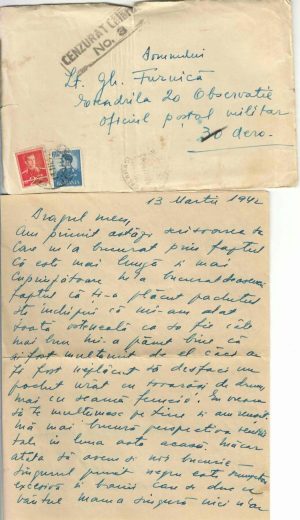 CENZURAT
No. 3
Domnului
Lt. Gh. Furnică
Escadrila 20 Observatie
Oficiul poștal militar
30 aero.
ROMANIA
13 Martie 1942
Dragul meu,
Am primit astăzi scrisoarea ta
care m'a bucurat prin faptul
că este mai lungă și mai
cuprinzătoare. M'a bucurat deasemeni
faptul că ți-a plăcut pachetul
că mi-am dat
toată osteneala ca să fie cât
mai bun. Mi-a părut bine că
ai fost mulțumit de el căci ar
fi fost neplăcut să desfaci un
pachet urât cu tovarăși de drum,
mai cu seamă
să te mulțumesc pe tine și am reușit.
Mă mai bucură perspectiva venirii
tale în luna asta acasă. Măcar
atâta să avem și noi bucurie —
singurul punct negru este
excesivă și banii care se duc ca
vântul. Mama singură nici n'ar